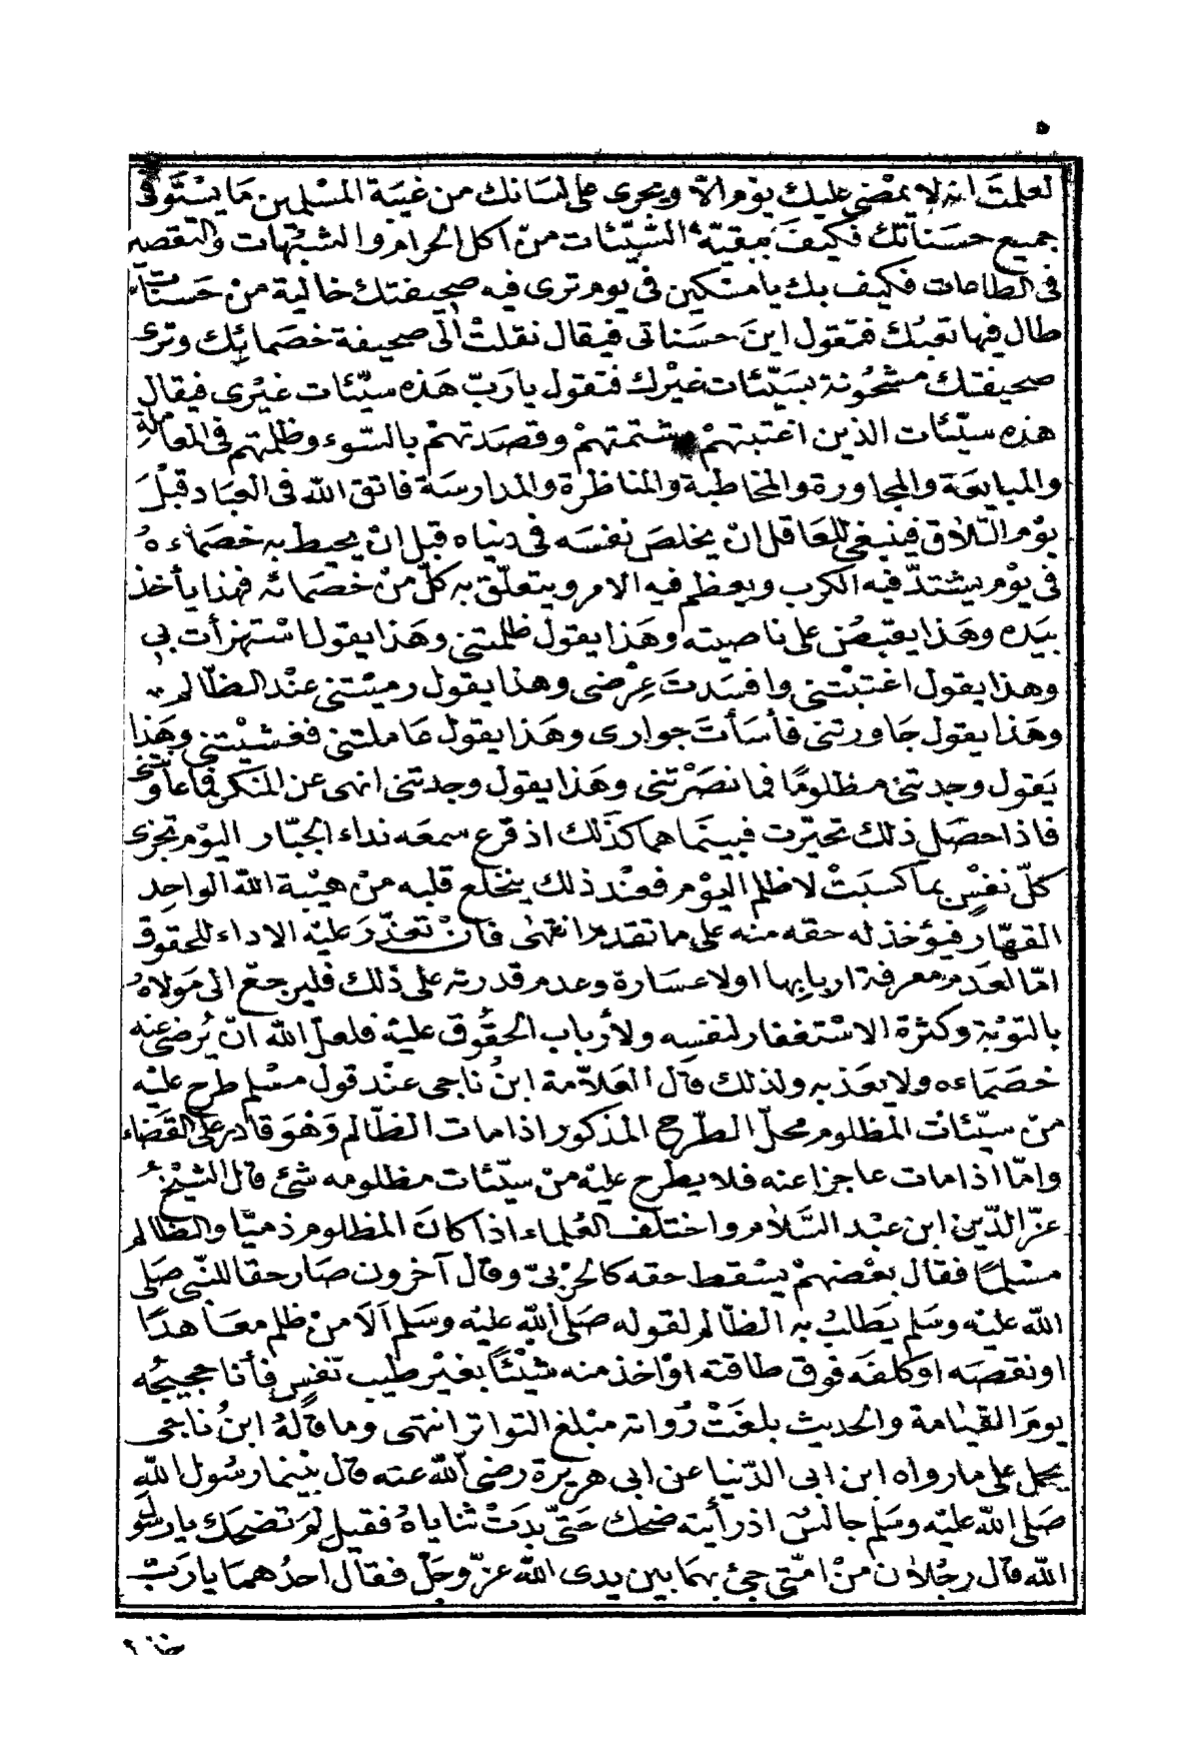 ٥
لعلمت انه لا يمضى عليك يوم الّا ويجرى على لسانك من غيبة المسلمين مَا يسْتَوفى
جميع حسَناتك فكيفَ ببقيّة السّيّئات منْ اكل الحرام والشبُهات والتقصير
فى الطاعات فكيف بك يا مسْكين فى يوم ترى فيه صحيفتك خالية منْ حَسنات
طال فيها تعبُك فتقول اينَ حسَناتى فيقال نقلتْ الٰى صحيفة خصَمائِك وترى
صحيفتك مشحُونة بسَيّئات غيْرك فتقول يا ربّ هَذه سيّئات غيْرى فيقال
هذه سيّئات الذين اغتبتهمْ شتمتهمْ وقصَدتهمْ بالسّوء وظلمتهم فى المعاملة
والمبايعَة والمجاورة والمخاطبة والمناظرة والمدارسَة فاتق الله فى العبَاد قبْلَ
يوْم التّلاق فينبغى للعَاقل انْ يخلصَ نفسَه فى دنياه قبل انْ يحيط به خصَماءهُ
فى يوْم يشتدّ فيه الكرب ويعظم فيه الامر ويتعلّق به كلّ منْ خصَمائه فهذا يأخذ
بيَده وهَذا يقبُض على ناصيته وهَذا يقول ظلمتنى وهَذا يقول اسْتهزأت بى
وهذا يقول اغتبْتنى وافسَدتَ عِرْضى وهذا يقول رميْتنى عنْد الظّالم
وهَذا يقول جَاورتنى فأسَأتَ جوارى وهَذا يقول عَاملتنى فغشيْتنى وهَذا
يَقول وجدتنى مظلومًا فما نصَرْتنى وهَذا يقول وجدتنى انهى عن المنكر فما عاونتنى
فاذا حصَل ذلك تحيّرت فبينَما هما كذلك اذ قرع سمعَه نداء الجبّار اليوْم تجزى
كلّ نفسٍ بما كسبَتْ لا ظلم اليوْم فعنْد ذلك ينخلع قلبه منْ هيْبة الله الواحِد
القهّار فيؤخذ له حقه منه على ما تقدم انتهٰى فانْ تعذّرَ عليْه الاداء للحقوق
امّا لعَدم معرفة اربابها او لاعسَارة وعدم قدرته على ذلك فليرجعْ الى مَولاهُ
بالتوْبة وكثرة الاسْتغفار لنفسِه ولأرباب الحقُوق عليْه فلعلّ الله انْ يُرضى عنه
خصَماءه ولا يعَذبه ولذلك قال العَلاّمة ابنُ ناجى عنْد قول مسْلم طرح عليْه
منْ سيّئات المظلوم محلّ الطّرح المذكور اذا مات الظّالم وَهْوَ قادر على القضَاء
وامّا اذا مات عاجزا عنه فلا يطرح عليْه منْ سيّئات مظلومه شئ قال الشيْخُ
عزّ الدّين ابن عبْد السَّلام واختلف العُلماء اذا كانَ المظلوم ذميّا والظالم
مسْلمًا فقال بعْضهمْ يسْقط حقه كالحرْبىّ وقال آخرون صَار حقا للنّبى صَلى
الله عليْه وسَلم يَطالبُ به الظالم لقوله صَلى الله عليْه وسَلم اَلَا منْ ظلم معَاهدًا
او نقصَه او كلفَه فوق طاقته اوْ اخذ منه شيْئاً بغيْر طيب نفسٍ فأنا حجيجُه
يومَ القيٰامة والحديث بلغَتْ رُواته مبْلغ التواتر انتهى وما قالهُ ابنُ ناجى
يحمل على ما رواه ابن ابى الدّنيا عن ابى هريْرة رضى الله عنه قال بيْنما رسُول الله
صَلى الله عليْه وسَلم جالسٌ اذ رأيته ضحك حَتّى بدَتْ ثناياهُ فقيل لمَ تضحك يا رسُول
الله قال رجُلان منْ امّتى جئ بهمَا بين يدى الله عزّ وجلّ فقال احدُهمَا يا ربّ
خذ لى